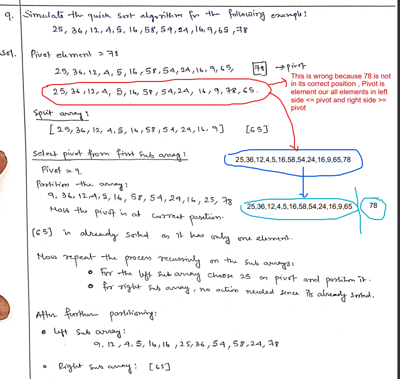 9. Simulate the quick sort algorithm for the following example:
25, 36, 12, 4, 5, 16, 58, 54, 24, 16, 9, 65, 78
Sol. Pivot element = 78
25, 36, 12, 4, 5, 16, 58, 54, 24, 16, 9, 65, 78 → pivot
25, 36, 12, 4, 5, 16, 58, 54, 24, 16, 9, 78, 65.
This is wrong because 78 is not
in its correct position , Pivot is
element our all elements in left
side <= pivot and right side >=
pivot
Split array:
[25, 36, 12, 4, 5, 16, 58, 54, 24, 16, 9] [65]
Select pivot from first sub array:
Pivot = 9
25,36,12,4,5,16,58,54,24,16,9,65,78
Partition the array:
9, 36, 12, 4, 5, 16, 58, 54, 24, 16, 25, 78
Now the pivot is at correct position.
25,36,12,4,5,16,58,54,24,16,9,65 78
[65] is already sorted as it has only one element.
Now repeat the process recursively on the sub arrays:
o For the left sub array choose 25 as pivot and partition it.
o for right sub array, no action needed since its already sorted.
After further partitioning:
• left sub array:
9, 12, 4, 5, 16, 16, 25, 36, 54, 58, 24, 78
• Right sub array: [65]